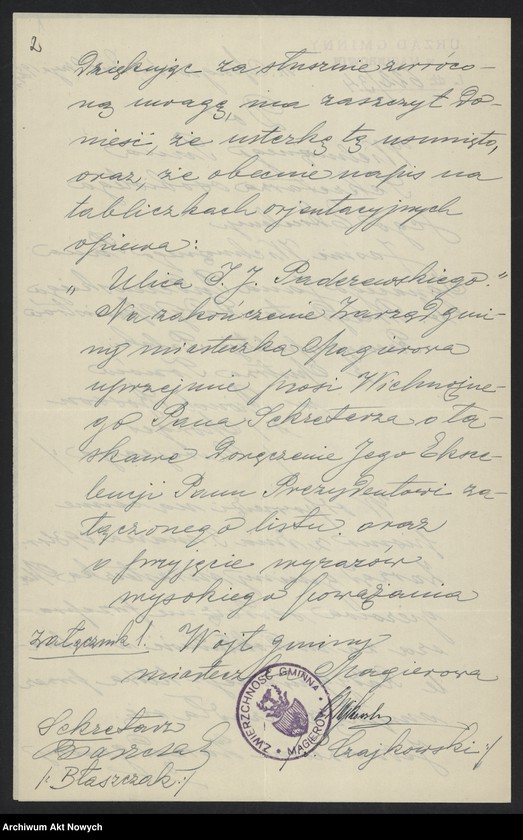 2
Dziękując za słusznie zwróco-
ną uwagę, ma zaszczyt do-
nieść, że usterkę tę usunięto,
oraz, że obecnie napis na
tabliczkach orjentacyjnych
opiewa:
„Ulica I. J. Paderewskiego."
Na zakończenie Zarząd gmi-
ny miasteczka Magierowa
uprzejmie prosi Wielmożne-
go Pana Sekretarza o ła-
skawe doręczenie Jego Eksce-
lencji Panu Prezydentowi za-
łączonego listu oraz
o przyjęcie wyrazów
wysokiego poważania
Załącznik 1. Wójt gminy
Magierowa
ZWIERZCHNOŚĆ GMINNA • MAGIERÓW •
Sekretarz
/: Błaszczak :/
Czajkowski :/
Archiwum Akt Nowych